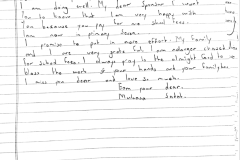 I am doing well. My dear Sponsor I want
you to know that I am very happy with
you because you pay for my school fees.
I am now in primary seven.
I promise to put in more effort. My family
and I are very grateful. I am no longer chased
for school fees. I always pray to the almighty God to
bless the work of your hands and your family
I miss you dear and love so much.
From your dear.
Mukasa